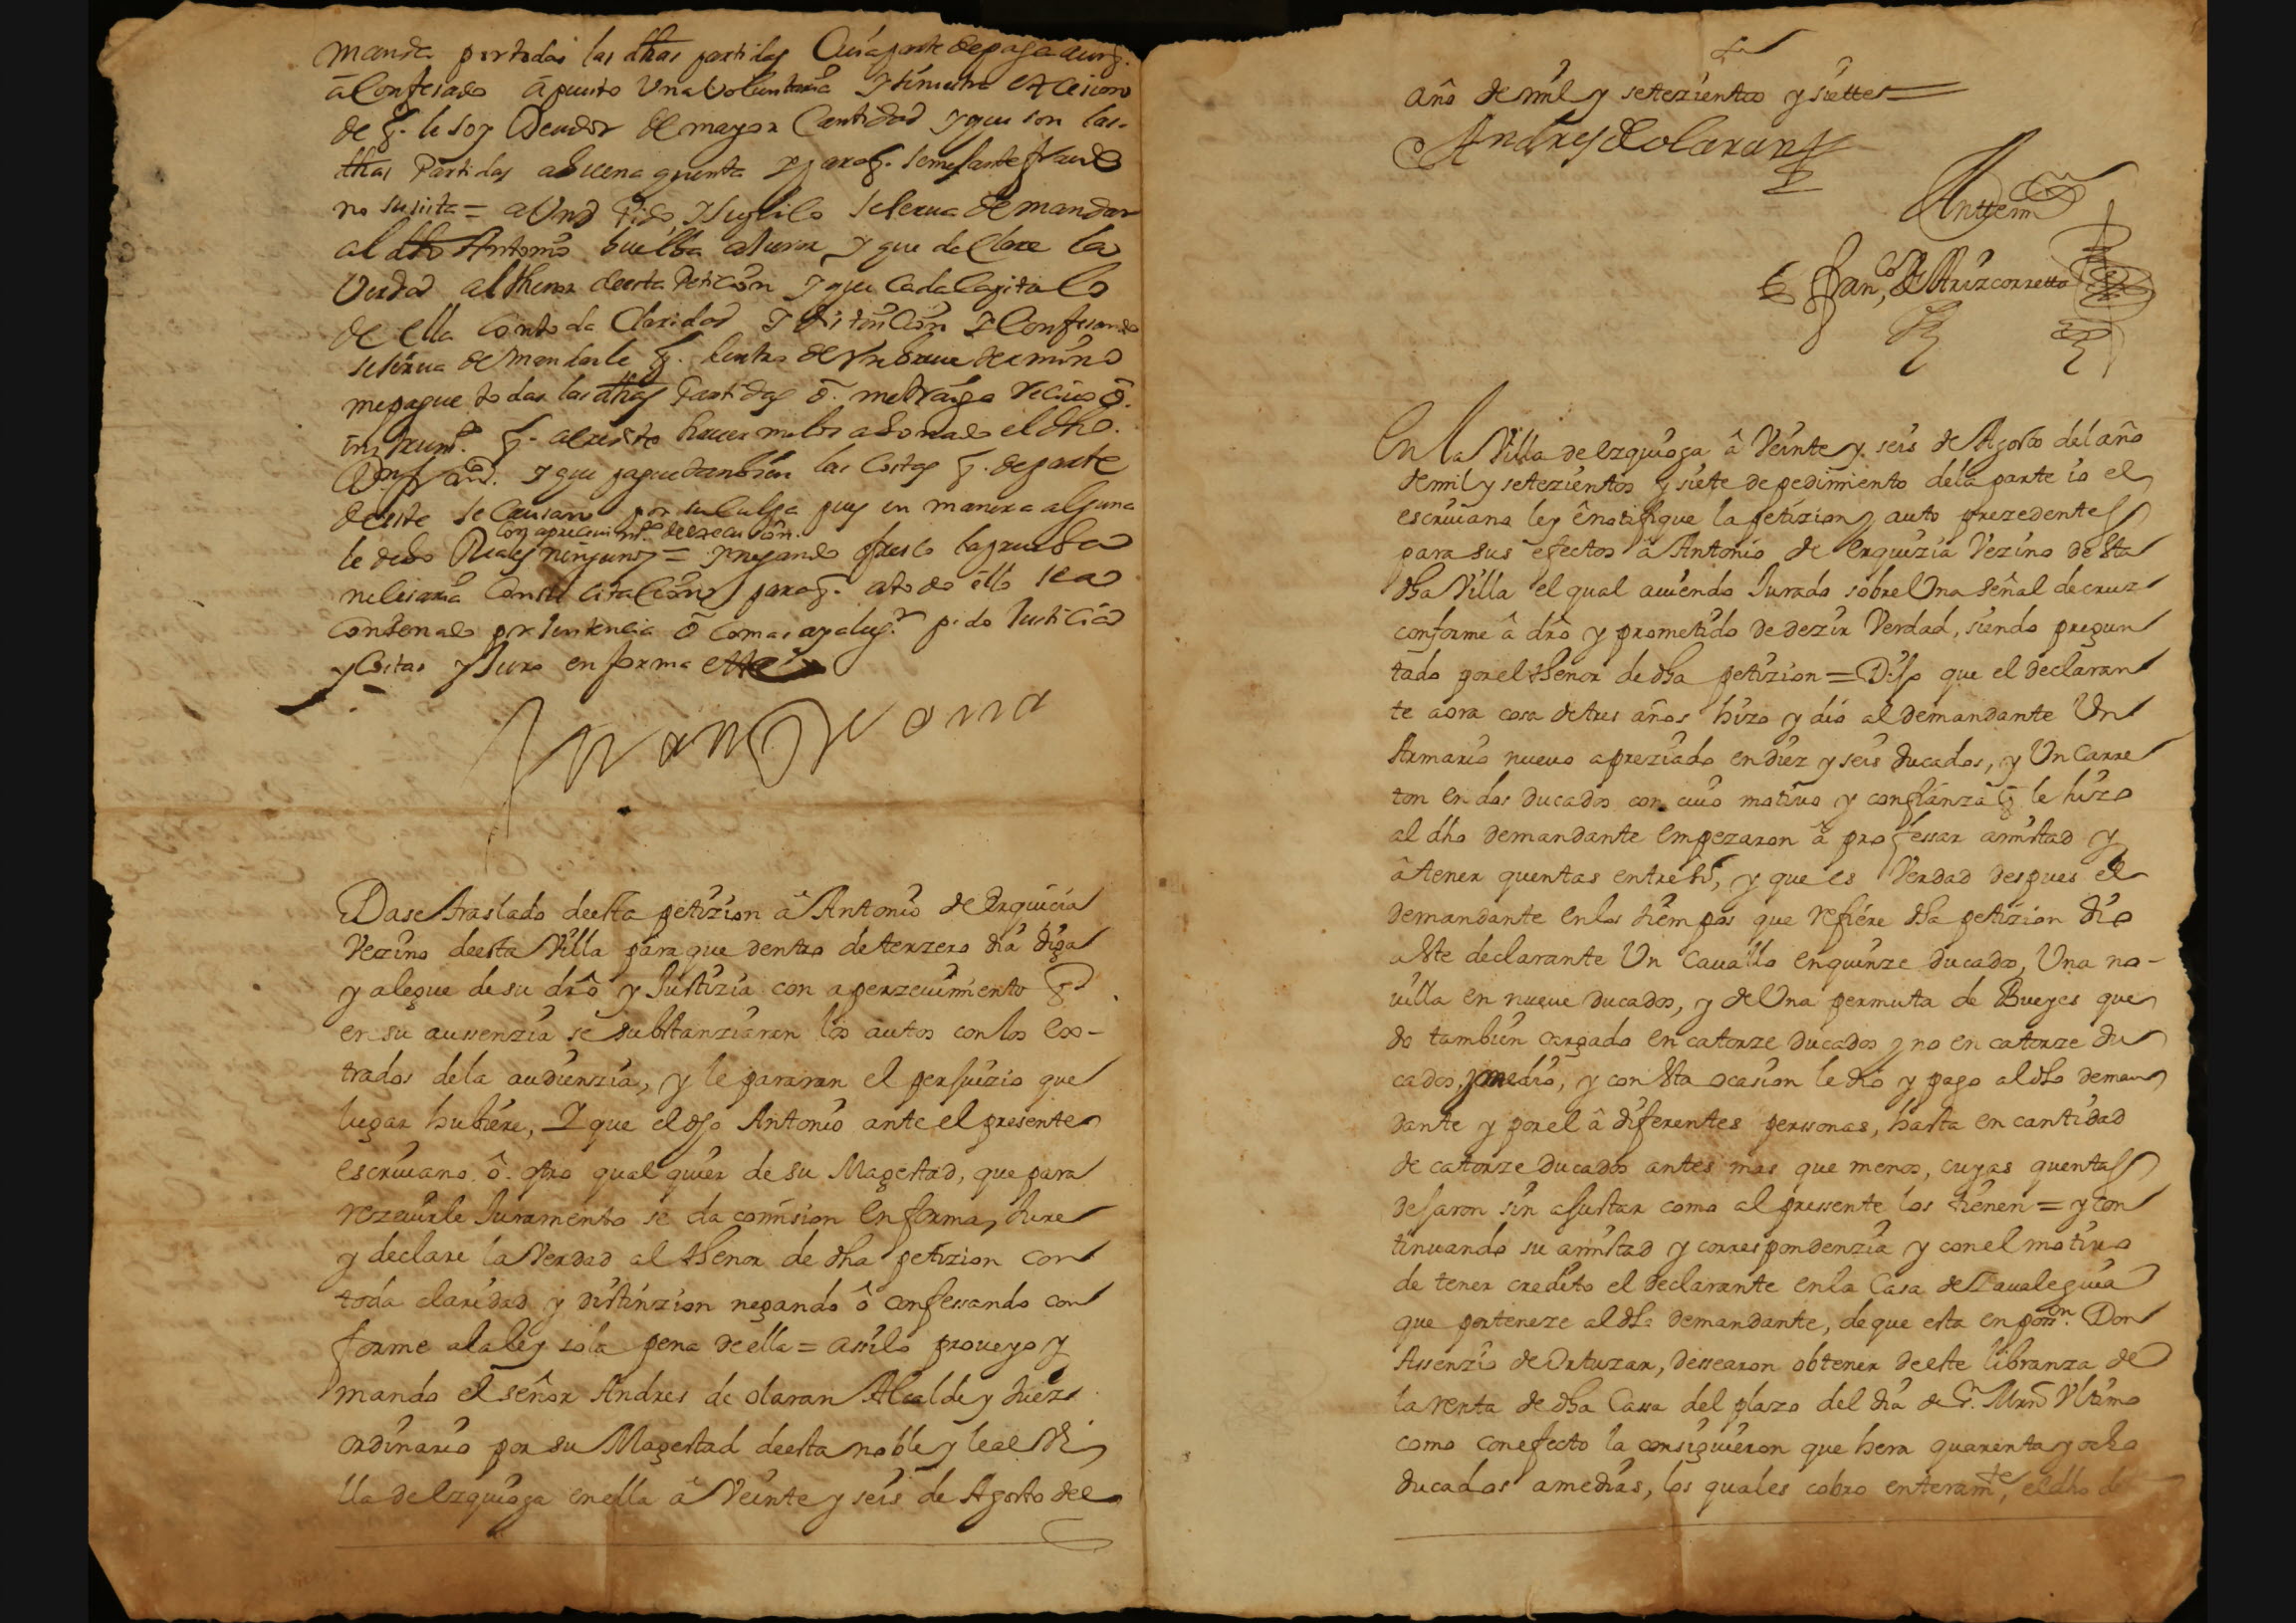 manda por todas las dhas partidas Cuia parte de paga aunq.
â Confesado â puesto Una Voluntaria y siniestra exCecion
de q. le soy Deudor de mayor Cantidad y que son las
dhas Partidas a buena quenta y para q. semejante fraude
no susista = a Vmd Pido y suplico se serua de mandar
al dho Antonio buelba a Jurar y que declare la
Verdad al thenor de esta Peticion y que cada Capitulo
de ella Con toda Claridad y distincion y Confesando
se sirua de mandarle q. dentro de Un breue termino
me pague todas las dhas Partidas ô me trayga reciuo ô
instrum.to q.
y que pague tambien las Costas q. de parte
de este se Causaren por su Culpa pues en manera alguna
con aperceuim.to de execucion
le debo Reales ningunos = y negando ofresco la prueba
nesesaria Con su citacion para q. a todo ello sea
Condenado por sentencia ô Como aya lug.r pido Justicia
y Costas y Juro en forma etta
Dase traslado de esta petizion â Antonio de Erquicia
Vezino de esta Villa para que dentro de terzero dia diga
y alegue de su dro y Justizia con aperzeuimiento q.
en su aussenzia se substanziaran los autos con los ex-
trados de la audienzia, y le pararan el perjuizio que
lugar hubiere, Y que el dho Antonio ante el presente
escriuano ô otro qual quier de su Magestad, que para
rezeuirle Juramento se da comision en forma, Jure
y declare la Verdad al thenor de dha petizion con
toda claridad y distinzion negando ô confessando con
forme a la ley so la pena de ella = assi lo proueyo y
mando el señor Andres de olaran Alcalde y Juez
ordinario por su Magestad de esta noble y leal Vi
lla de Ezquioga en ella â Veinte y seis de Agosto del
año de mil y setezientos y siette =
Andres de olaran
Antte mi
Fran.co de Arizcorretta
En la Villa de ezquioga â Veinte y seis de Agosto del año
de mil y setezientos y siete de pedimiento de la parte io el
escriuano ley ê notifique la petizion y auto prezedentes
para sus efectos â Antonio de erquizia Vezino de sta
dha Villa el qual auiendo Jurado sobre Una señal de cruz
conforme â dro y prometido de dezir Verdad, siendo pregun
tado por el thenor de dha petizion = Dijo que el declaran
te aora cosa de tres años hizo y dio al demandante Un
Armario nueuo apreziado en diez y seis ducados, y Un Carre
ton en dos ducados con cuio motiuo y confianza q. le hizo
al dho demandante empezaron â professar amistad y
â tener quentas entre si, y que es Verdad despues el
demandante en los tiempos que refiere dha petizion dio
a ste declarante Un Cauallo en quinze ducados, Una no-
uilla en nueue ducados, y de Una permuta de Bueyes que
do tambien cargado en catorze ducados y no en catorze du
cados, y medio, y con sta ocasion le dio y pago al dho deman
dante y por el â diferentes perssonas, hasta en cantidad
de catorze ducados antes mas que menos, cuyas quentas
dejaron sin ajustar como al pressente los tienen = y con
tinuando su amistad y correspondenzia y con el motiuo
de tener credito el declarante en la Casa de Zaualeguia
que perteneze al dho demandante, de que esta en poss.on Don
Assenzio de Ortuzar, dessearon obtener de este libranza de
la renta de dha Cassa del plazo del dia de S. Mrn Vltimo
como con efecto la consiguieron que hera quarenta y ocho
ducados a medias, los quales cobro enteram.te, el dho de